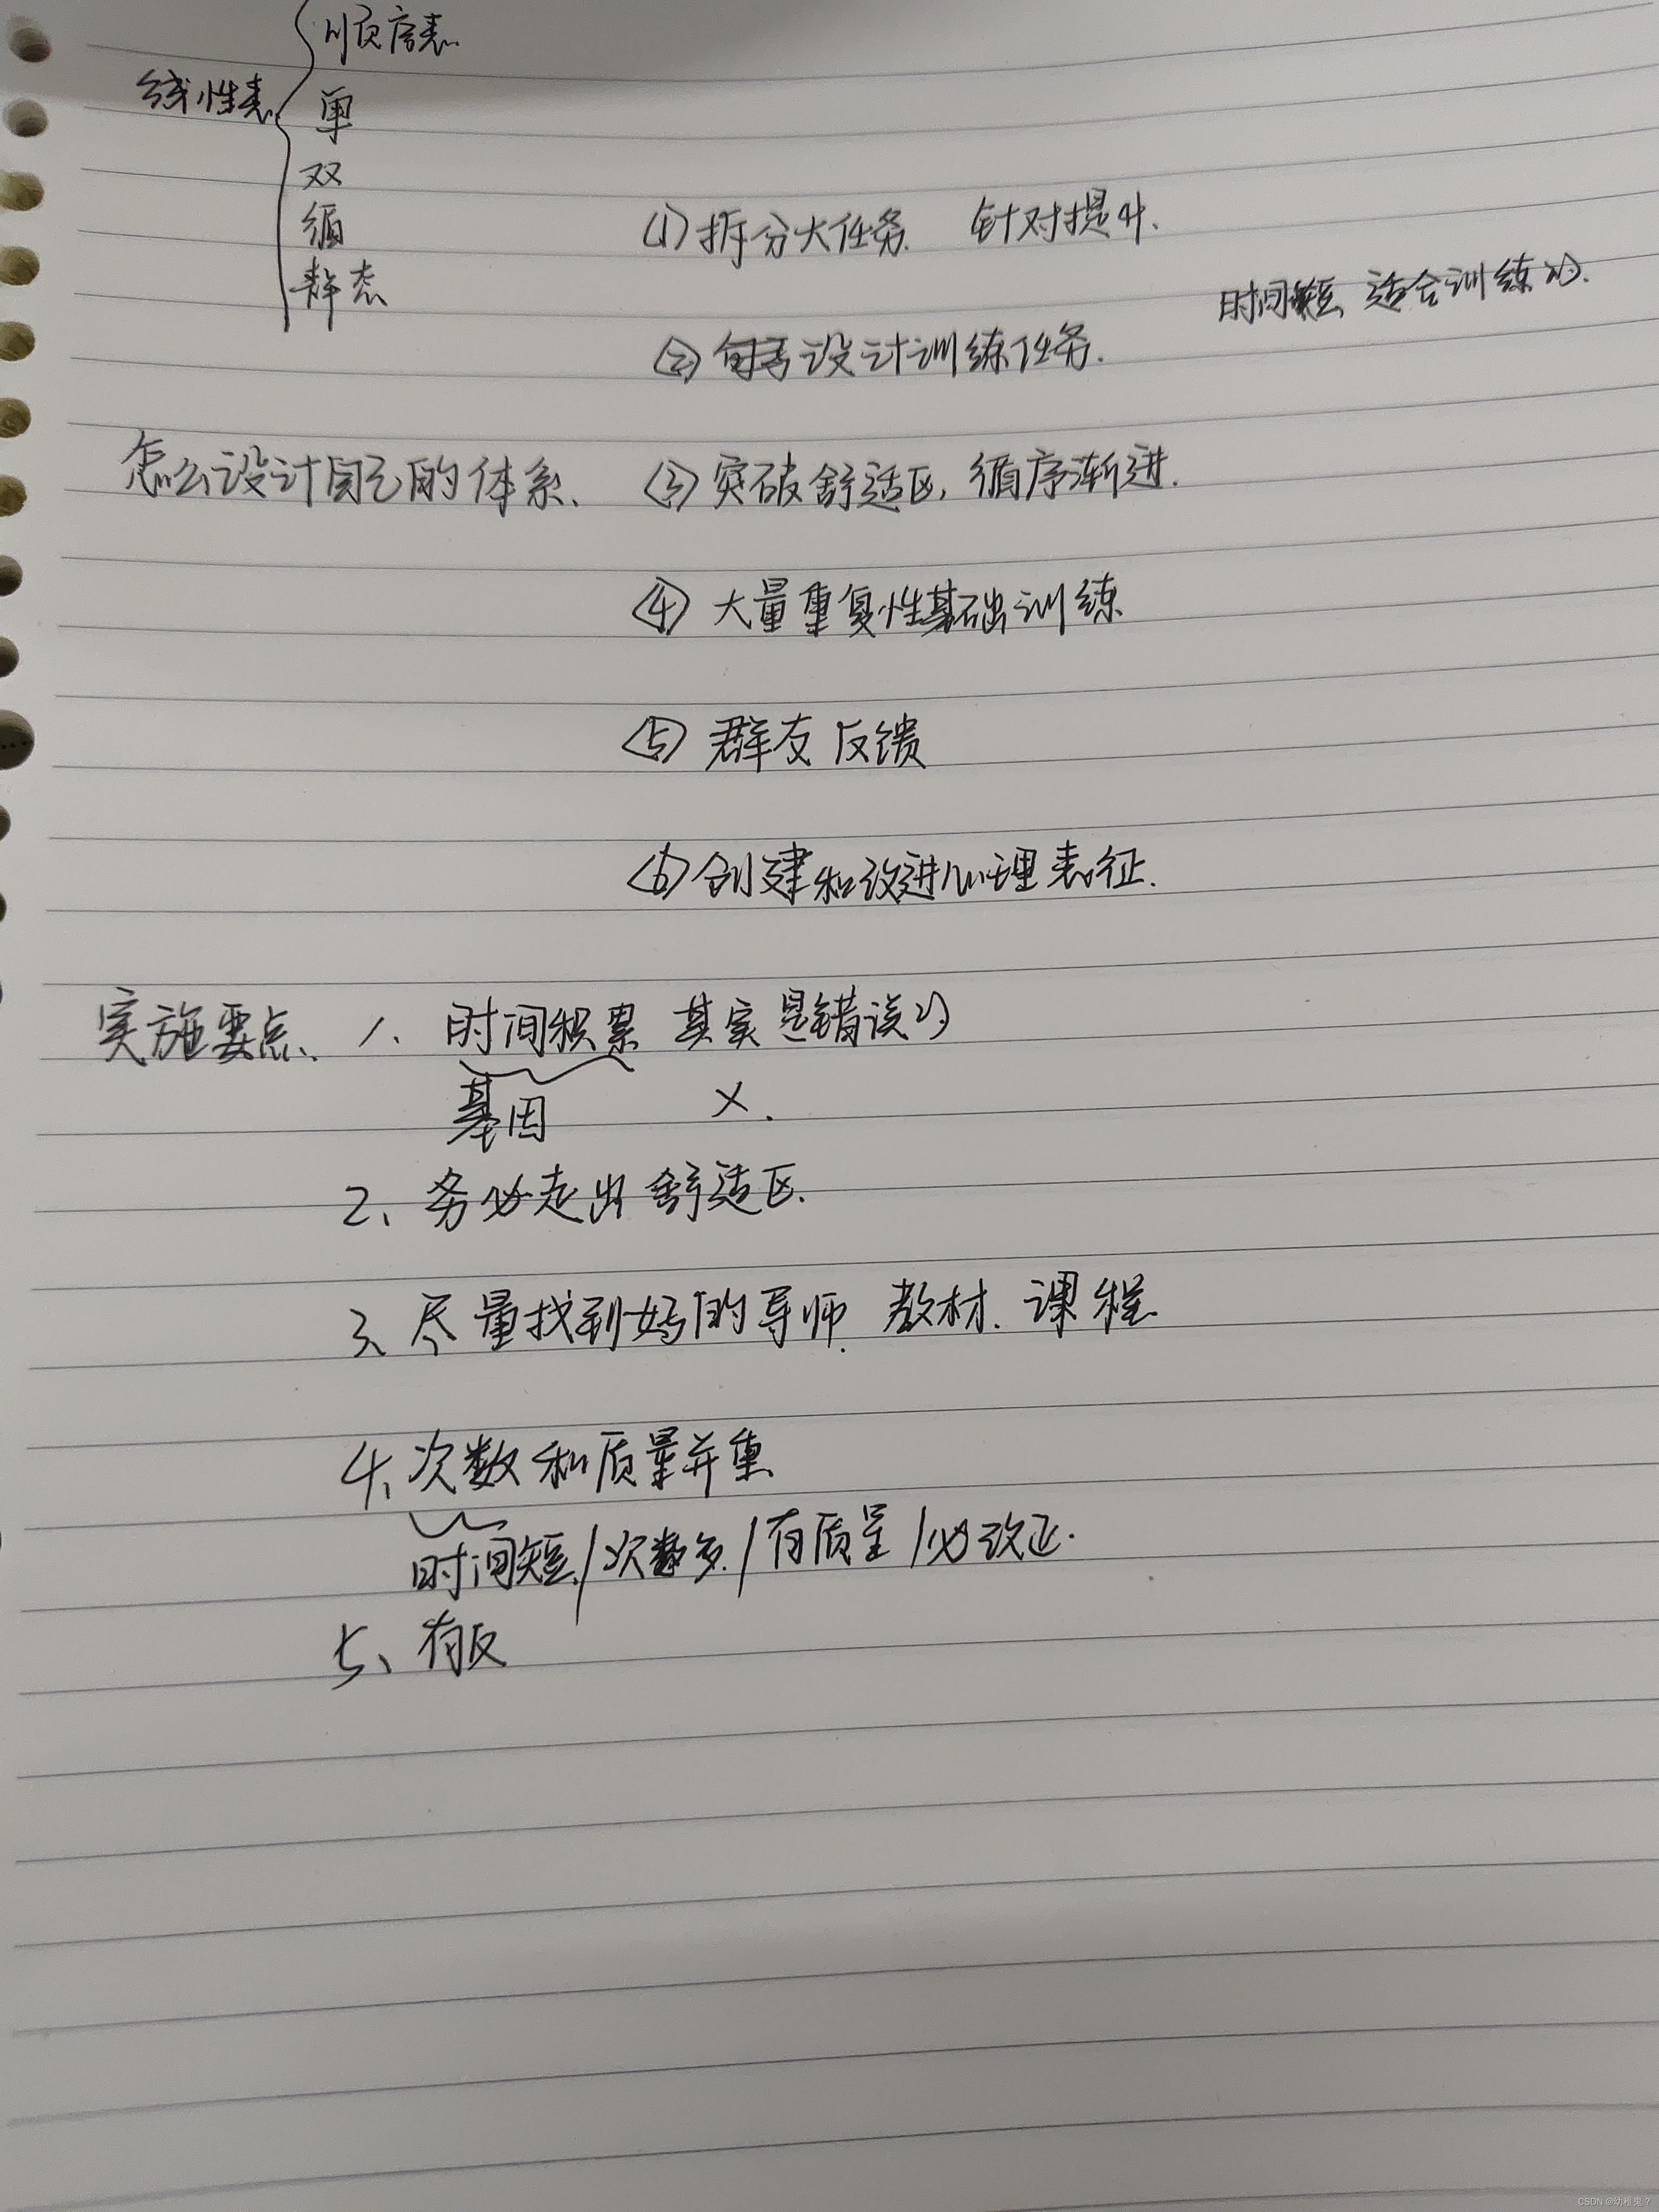 顺序表
线性表
单
双
循
静态
(1) 拆分大任务. 针对提升.
时间短, 适合训练的.
(2) 设计训练任务.
怎么设计自己的体系、
(3) 突破舒适区, 循序渐进.
(4) 大量重复性基础训练
(5) 群友反馈
(6) 创建和改进心理表征.
实施要点、 1、 时间积累 其实是错误的
基因 ×.
2、务必走出舒适区.
3、尽量找到好的导师. 教材. 课程.
4、次数和质量并重
时间短./次数多./有质量/必改正.
5、有反
CSDN @幼稚鬼?